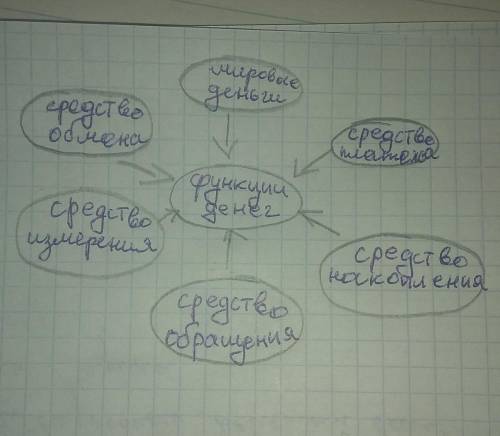 мировые
деньги
средство
обмена
средство
платежа
функции
денег
средство
измерения
средство
накопления
средство
обращения